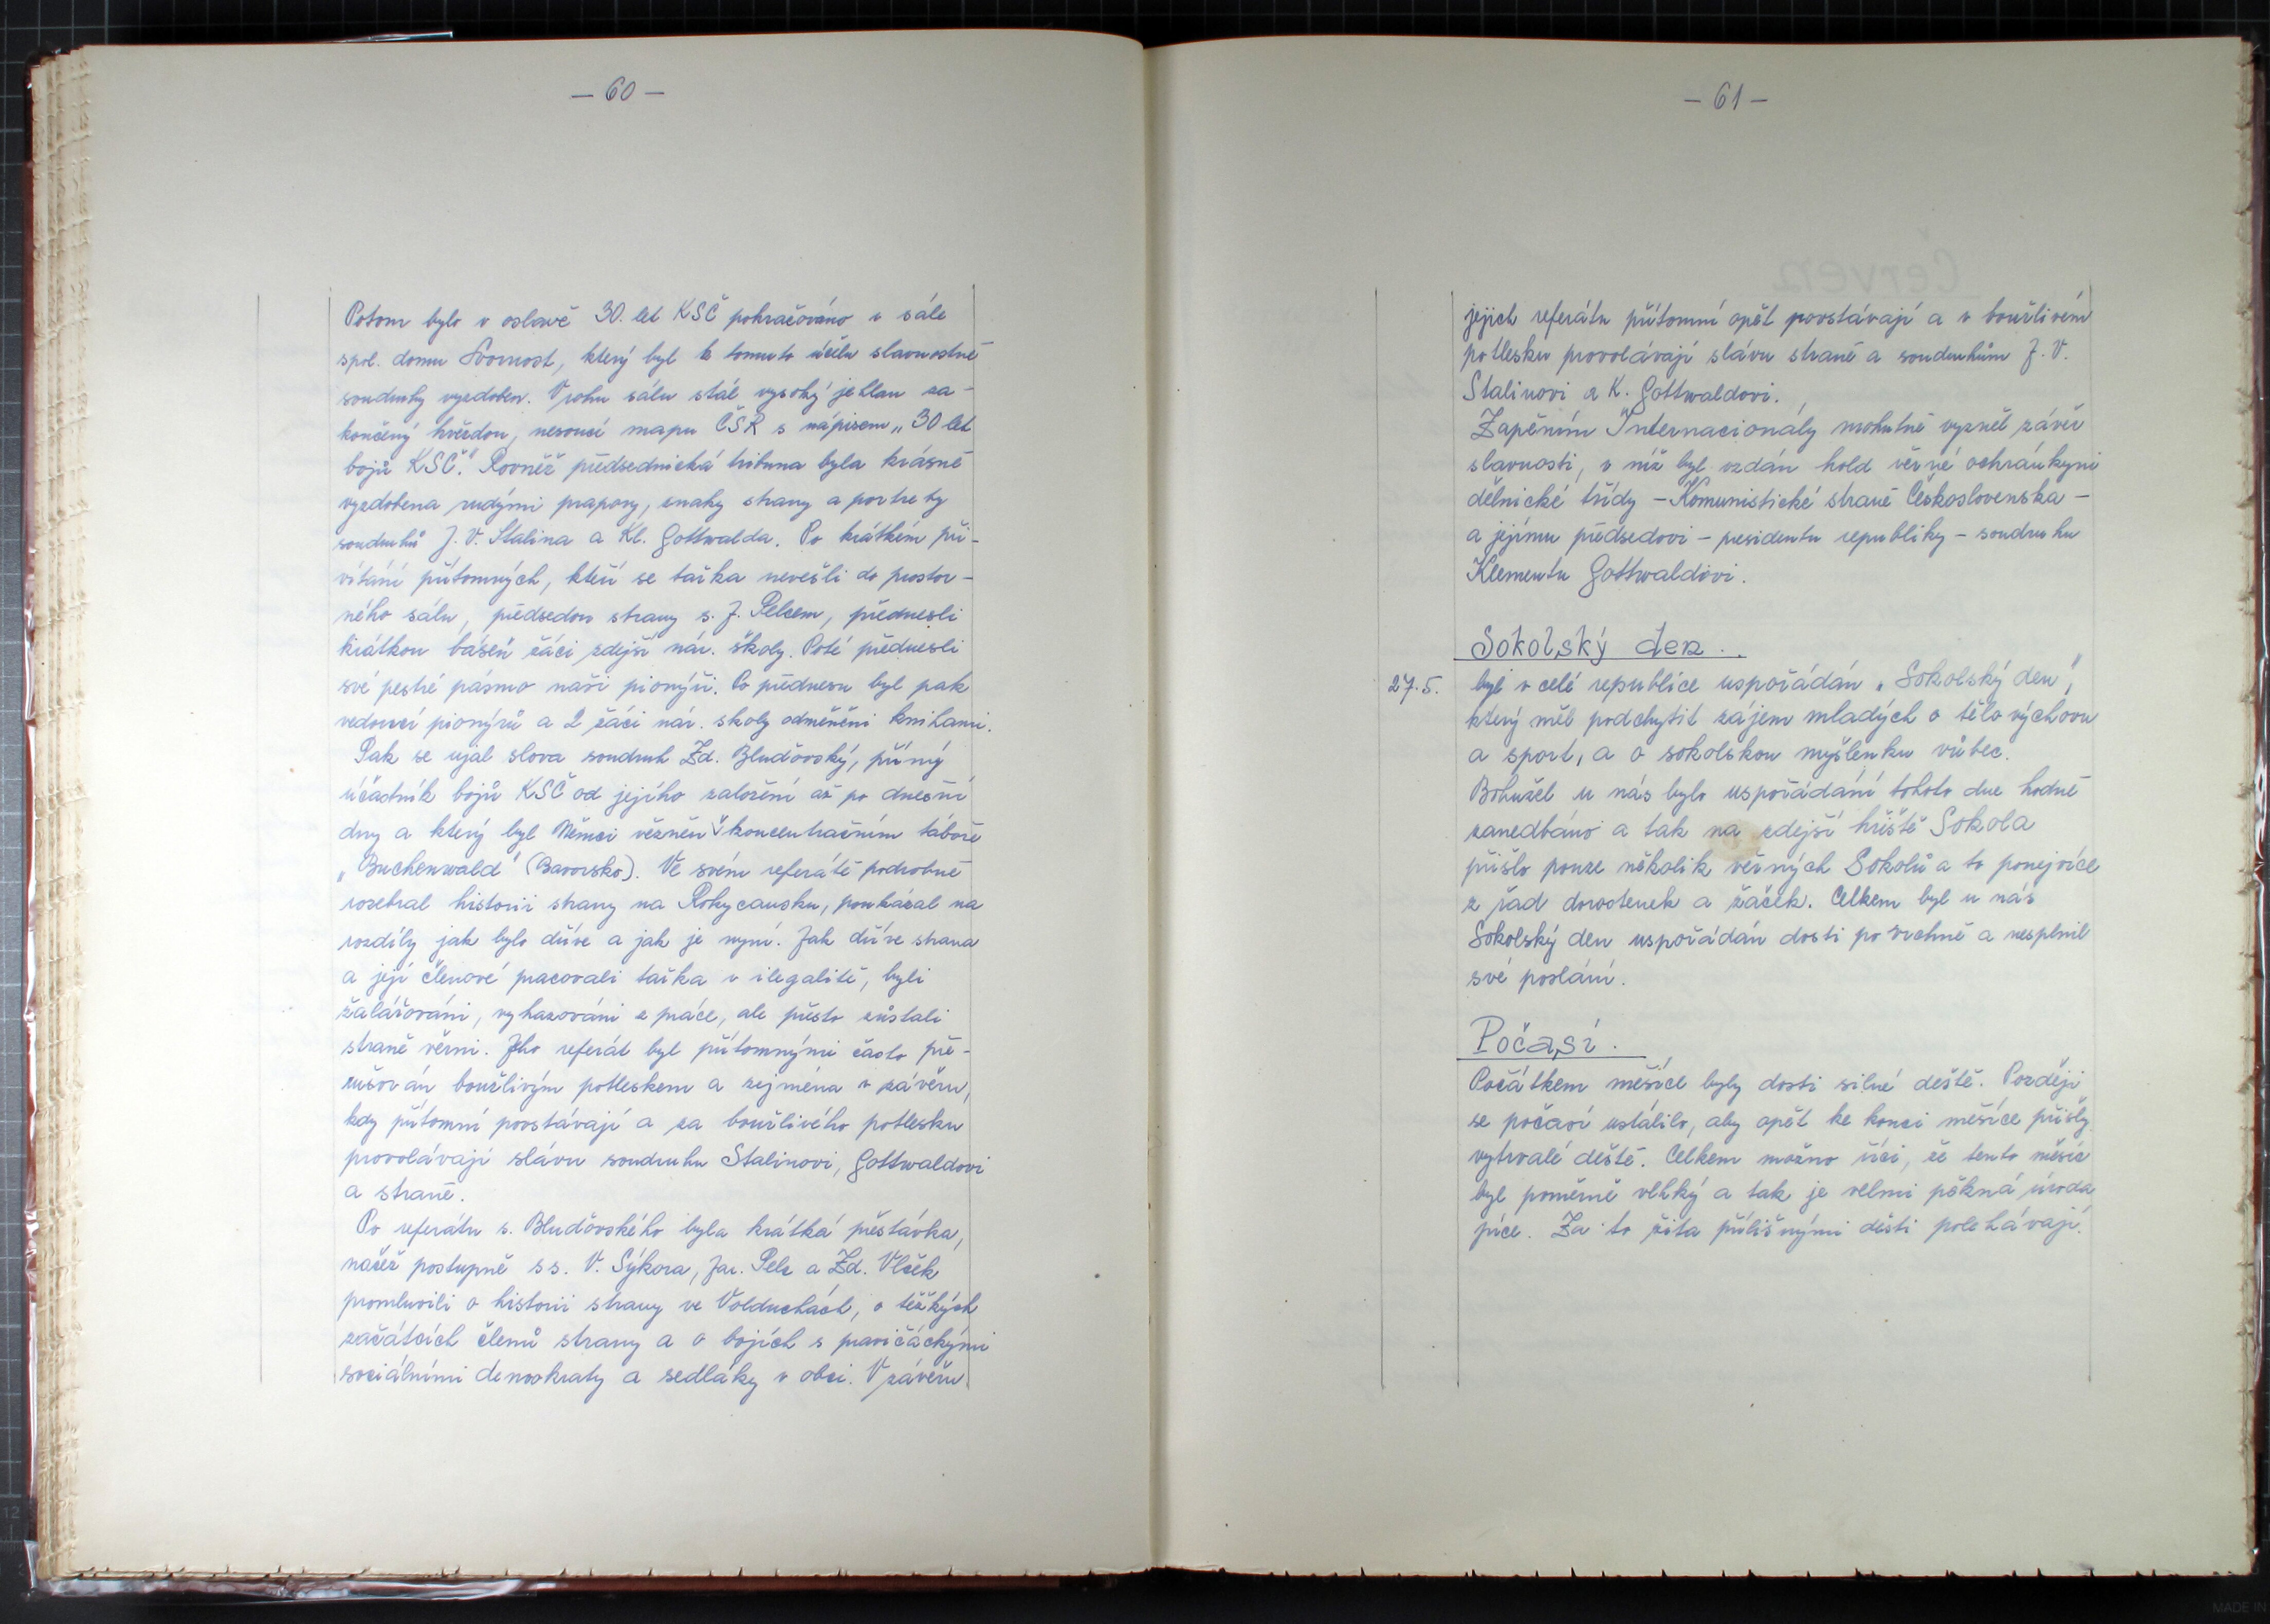 — 60 —
Potom bylo v oslavě 30. let KSČ pokračováno v sále
spol. domu Svornost, který byl k tomuto účelu slavnostně
soudruhy vyzdoben. V rohu sálu stál vysoký jehlan za-
končený hvězdou, nesoucí mapu ČSR s nápisem „30 let
bojů KSČ." Rovněž předsednická tribuna byla krásně
vyzdobena rudými prapory, znaky strany a portrety
soudruhů J. V. Stalina a Kl. Gottwalda. Po krátkém při-
vítání přítomných, kteří se taška nevešli do prostor-
ného sálu, předsedou strany s. J. Pelcem, přednesli
krátkou báseň žáci zdejší nár. školy. Poté přednesli
své pestré pásmo naši pionýři. Po přednesu byl pak
vedoucí pionýrů a 2 žáci nár. školy odměněni knihami.
Pak se ujal slova soudruh Zd. Bluďovský, přímý
účastník bojů KSČ od jejího založení až po dnešní
dny a který byl Němci vězněn v koncentračním táboře
„Buchenwald" (Bavorsko). Ve svém referátě podrobně
rozebral historii strany na Rokycansku, poukázal na
rozdíly jak bylo dříve a jak je nyní. Jak dříve strana
a její členové pracovali taška v ilegalitě, byli
žalářováni, vyhazováni z práce, ale přesto zůstali
straně věrni. Jeho referát byl přítomnými často pře-
rušován bouřlivým potleskem a zejména v závěru,
kdy přítomní povstávají a za bouřlivého potlesku
provolávají slávu soudruhu Stalinovi, Gottwaldovi
a straně.
Po referátu s. Bluďovského byla krátká přestávka,
načež postupně ss. V. Sýkora, Jar. Pelc a Zd. Vlček
promluvili o historii strany ve Volduchách, o těžkých
začátcích členů strany a o bojích s pravičáckými
sociálními demokraty a sedláky v obci. V závěru
— 61 —
jejich referátu přítomní opět povstávají a v bouřlivém
potlesku provolávají slávu straně a soudruhům J. V.
Stalinovi a K. Gottwaldovi.
Zapěním Internacionály mohutně vyzněl závěr
slavnosti, v níž byl vzdán hold věrné ochránkyni
dělnické třídy — Komunistické straně Československa —
a jejímu předsedovi — presidentu republiky — soudruhu
Klementu Gottwaldovi.
Sokolský den.
27.5. byl v celé republice uspořádán „Sokolský den",
který měl podchytit zájem mladých o tělovýchovu
a sport, a o sokolskou myšlenku vůbec.
Bohužel u nás bylo uspořádání tohoto dne hodně
zanedbáno a tak na zdejší hřiště Sokola
přišlo pouze několik věrných Sokolů a to ponejvíce
z řad dorostenek a žáček. Celkem byl u nás
Sokolský den uspořádán dosti povrchně a nesplnil
své poslání.
Počasí.
Počátkem měsíce byly dosti silné deště. Později
se počasí ustálilo, aby opět ke konci měsíce přišly
vytrvalé deště. Celkem možno říci, že tento měsíc
byl poměrně vlhký a tak je velmi pěkná úroda
píce. Za to žita přílišnými dešti polehávají.